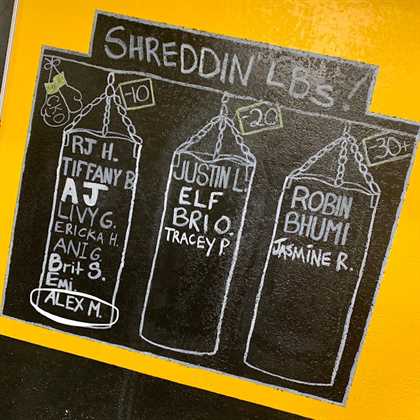 SHREDDIN' LBs!
-10
RJ H.
TIFFANY B
AJ
LIVY G.
ERICKA H.
ANI G.
Brit S.
Emi.
ALEX M.
-20
JUSTIN L.
ELF
BRI O.
TRACEY P.
-30+
ROBIN
BHUMI
JASMINE R.